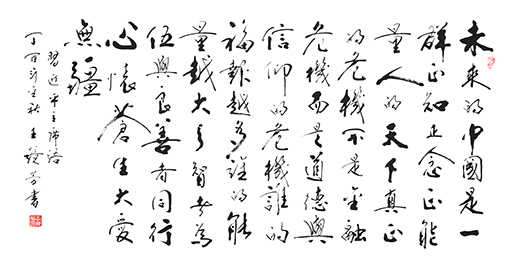 未來的中國是一
群正知正念正能
量人的天下真正
的危機不是金融
危機而是道德與
信仰的危機誰的
福報越多誰的能
量越大与智者為
伍與良善者同行
心懷蒼生大愛
無疆
習近平主席語
丁酉年金秋 王 芳書